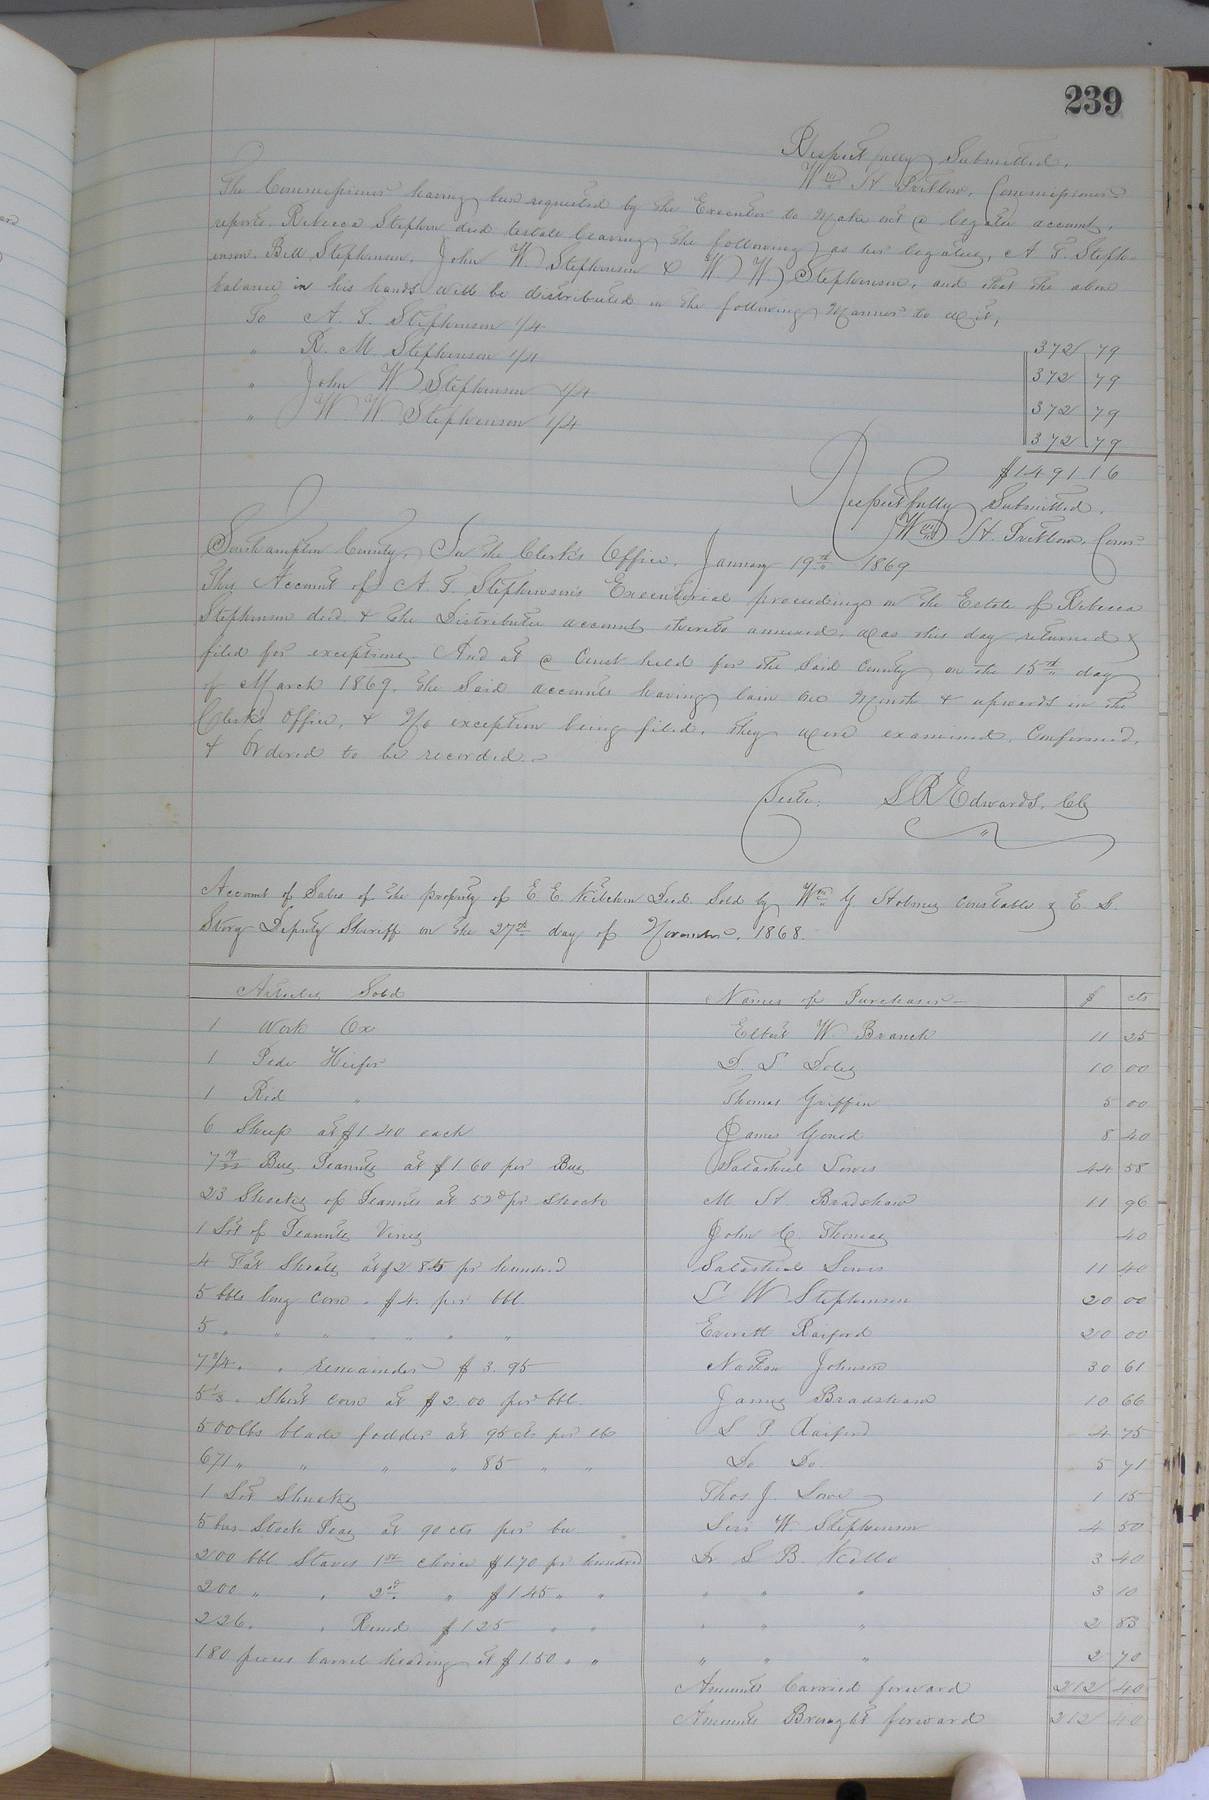 239
Respectfully Submitted.
Wm H Pretlow, Commissioner
The Commissioner having been requested by the Executor to make out a legatee account,
reports. Rebecca Stephen died testate leaving the following as her legatees, A. T. Steph-
enson. Bell Stephenson. John W Stephenson & W W Stephenson, and that the above
balance in his hands will be distributed in the following manner to wit,
To A. T. Stephenson 1/4 372 79
" R. M. Stephenson 1/4 372 79
" John W Stephenson 1/4 372 79
" W W Stephenson 1/4 372 79
$1491 16
Respectfully Submitted.
Wm H. Pretlow, Comr
Southampton County, In the Clerk's Office, January 19th 1869
This Account of A. T. Stephenson's Executorial proceedings on the Estate of Rebecca
Stephenson decd & the Distributee account thereto annexed, was this day returned &
filed for exceptions. And at a Court held for the said County on the 15th day
of March 1869. The said accounts having lain one Month & upwards in the
Clerk's Office, & No exception being filed, they were examined, Confirmed,
& Ordered to be recorded.
Teste: L R Edwards. Clk
Account of Sales of the property of E E Kitchen Decd. Sold by Wm G Constable & E. S.
Story Deputy Sheriff on the 27th day of November. 1868.
Articles Sold Names of Purchasers $ cts
1 Work Ox Elbert W Branch 11 25
1 Pide Heifer D. S. Doles 10 00
1 Red " Thomas Griffin 5 00
6 Sheep at $1.40 each James 8 40
Bus Peanuts at $1 60 per Bus Salathiel 44 58
23 Shocks of Peanuts at 52 pr Shock M. H Bradshaw 11 96
1 Lot of Peanuts Vines John C. Thomas 40
4 Fat Shoats at $2 85 pr hundred Salathiel 11 40
5 bbls long Corn . $4. per bbl. S W Stephenson 20 00
5 " " " " " " " Everett Raiford 20 00
7 3/4 . " remainder $3.95 Nathan Johnson 30 61
5 1/3 . Short corn at $2.00 per bbl. James Bradshaw 10 66
500 lbs blade fodder at 95 cts per lb L P Raiford 4 75
671 " " " " 85 " " Do Do. 5 71
1 Lot Shucks Thos J. 1 15
5 bus Stock Peas at 90 cts per bu W. Stephenson 4 50
200 bbl Staves 1st choice $1.70 pr hundred Dr S B. Kello 3 40
200 " " 2d " $1 45 " " " " " 3 10
226 . " $1 25 " " " " " 2 83
180 pieces barrel heading at $1.50 " " " " " 2 70
Amounts Carried forward 212 40
Amounts Brought forward 212 40